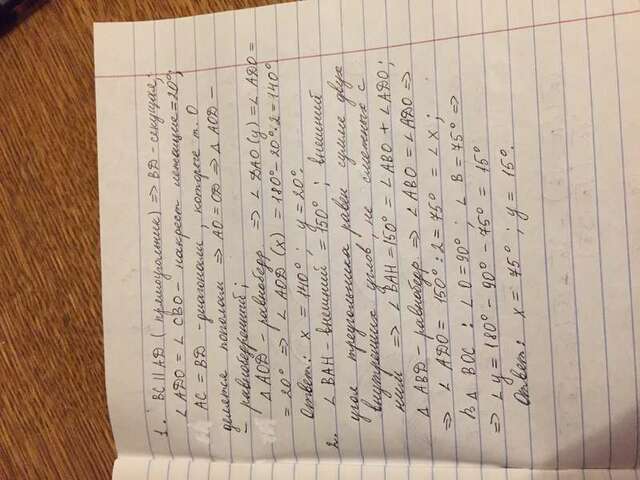 1. BC || AD (прямоугольник) => BD - секущая;
∠ADO = ∠CBO - накрест лежащие = 20°;
AC = BD - диагонали, которые т. O
делятся пополам => AO = OD => △AOD -
- равнобедренный;
△AOD - равнобедр. => ∠DAO (y) = ∠ADO =
= 20° => ∠AOD (x) = 180° - 20°·2 = 140°
Ответ: x = 140°; y = 20°.
2. ∠BAH - внешний = 150°; внешний
угол треугольника равен сумме двух
внутренних углов, не смежных с
ним => ∠BAH = 150° = ∠ABO + ∠ADO;
△ABD - равнобедр. => ∠ABO = ∠ADO =>
=> ∠ADO = 150° : 2 = 75° = ∠x;
В △BOC : ∠O = 90°; ∠B = 75° =>
=> ∠y = 180° - 90° - 75° = 15°
Ответ: x = 75°; y = 15°.